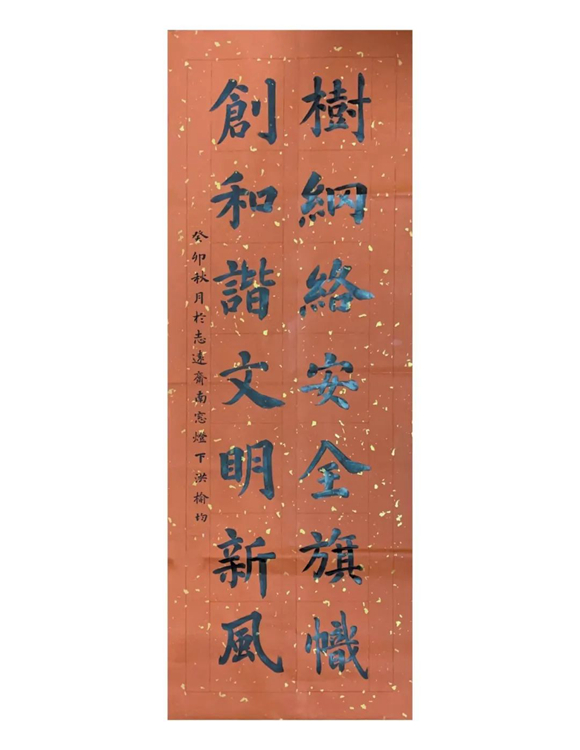 樹綱絡安全旗幟
創和諧文明新風
癸卯秋月於志遠齋南窓燈下洪榆均